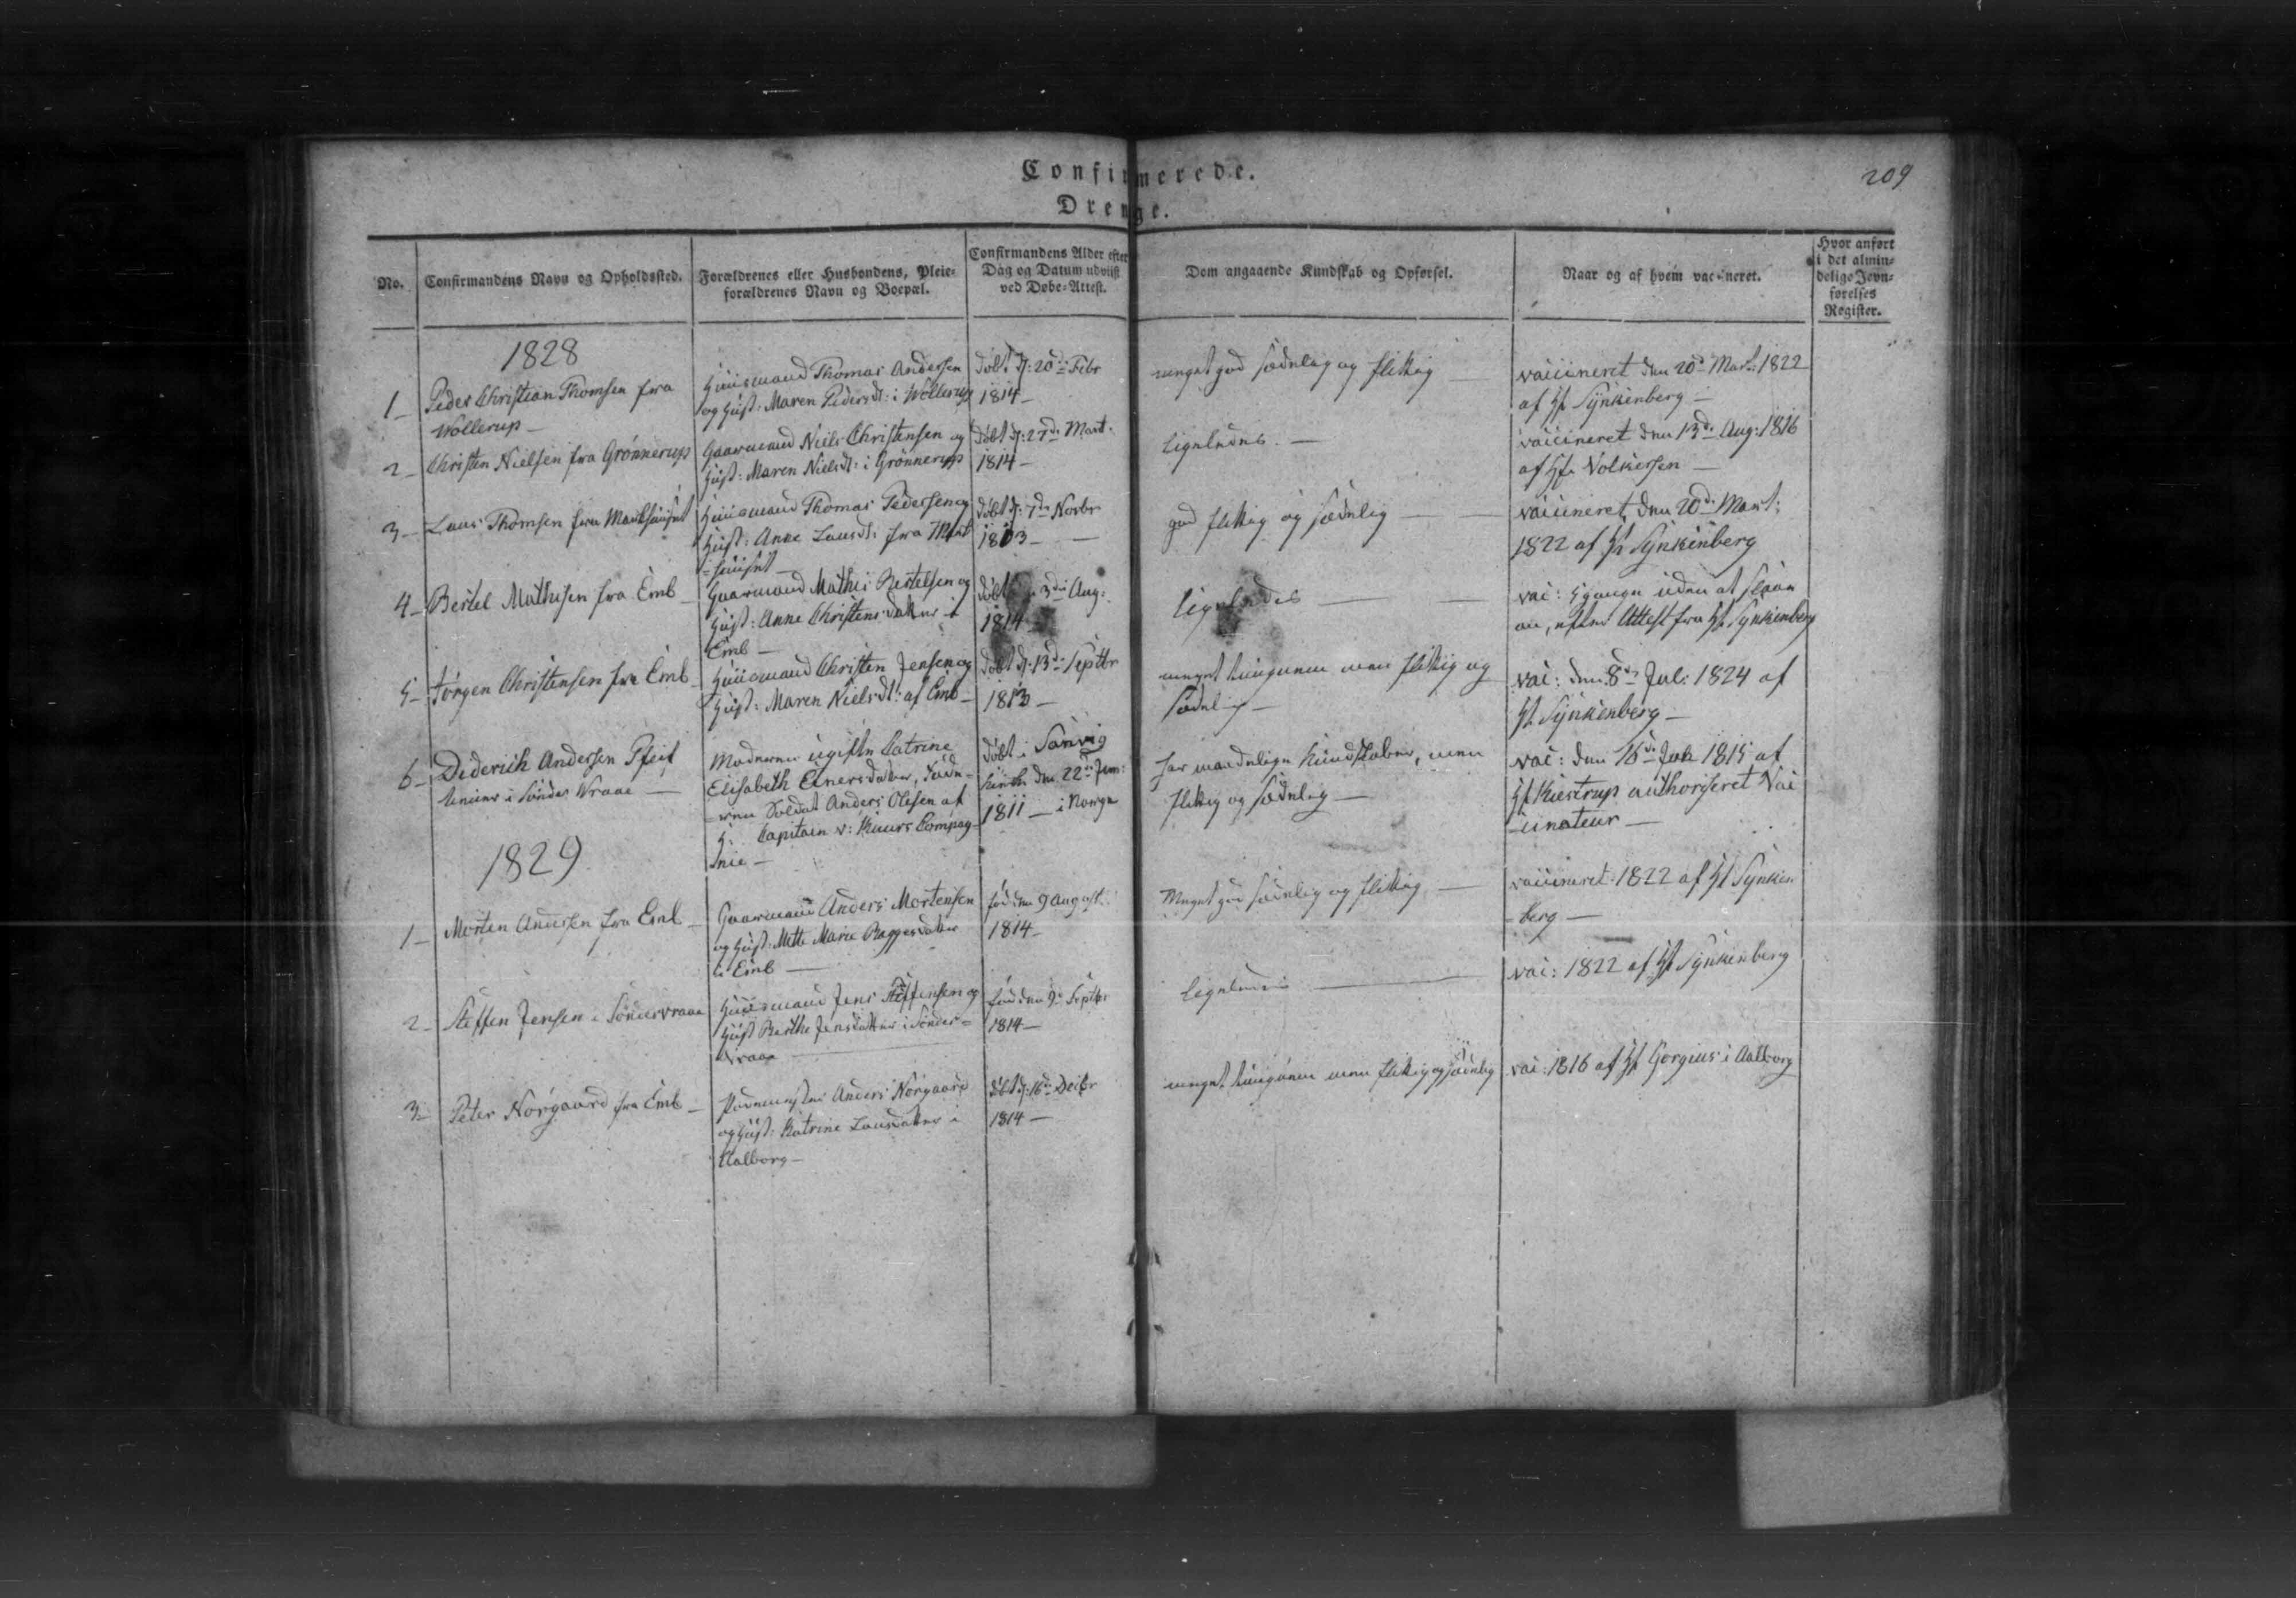 Confirmerede.
209
Drenge.
No.
Confirmandens Navn og Opholdssted.
Forældrenes eller Husbondens, Pleie=
forældrenes Navn og Boepæl.
Confirmandens Alder efter
Dag og Datum udviist
ved Døbe=Attest.
Dom angaaende Kundskab og Opførsel.
Naar og af hvem vaccineret.
Hvor anført
i det almin=
delige Jevn=
førelses
Register.
1828
1 —
Peder Christian Thomsen fra
Wollerup —
Huusmand Thomas Andersen
og Hust: Maren Pedersd: i Wollerup
døbt d: 20de Febr
1814 —
meget god sædelig og flittig —
vaccineret den 20de Mart: 1822
af Hr Synkenberg —
2 —
Christen Nielsen fra Grønnerup
Gaarmand Niels Christensen og
Hust: Maren Nielsd: i Grønnerup
døbt d: 27de Mart.
1814 —
ligeledes. —
vaccineret den 13de Aug: 1816
af Hr Volkersen —
3 —
Laus Thomsen fra
Huusmand Thomas Pedersen og
Hust: Anne Lausd: fra
døbt d: 7de Novbr
1813 —
god flittig og sædelig —
vaccineret den 20de Mart:
1822 af Hr Synkenberg
4 —
Bertel Mathisen fra Emb —
Gaarmand Mathis Bertelsen og
Hust: Anne Christensdatter i
Emb —
døbt 3die Aug:
1814
ligeledes —
vac: gange uden at slaae
an, efter Attest fra Hr Synkenberg
5 —
Jørgen Christensen fra Emb
Huusmand Christen Jensen og
Hust: Maren Nielsd: af Emb —
døbt d: 13de Septbr
1813 —
meget tungnem men flittig og
sædelig —
vac: den 8de Jul: 1824 af
Hr Synkenberg —
6 —
Dederich Andersen
tiener i Sønder Wraae —
Moderen ugifte Catrine
Elisabeth Einersdatter, Fade=
=ren Soldat Anders Olesen af
Capitain v: Kuurs Compag=
nie —
døbt i
Kirke den 22de
1811 — i Norge
har maadelige Kundskaber, men
flittig og sædelig —
vac: den 16de 1815 af
Hr Kiestrup authoriseret Vac
=cinateur —
1829
1 —
Morten Andersen fra Emb —
Gaarmand Anders Mortensen
og Hust: Mette Marie Baggesdatter
i Emb —
fød den 9 August:
1814 —
Meget god sædelig og flittig —
vaccineret 1822 af Hr Synken
=berg —
2 —
Steffen Jensen i Sønderwraae
Huusmand Jens Steffensen og
Hust Berthe Jensdatter i Sønder=
wraae
fød den 9de Septbr
1814 —
ligeledes —
vac: 1822 af Hr Synkenberg
3 —
Peter Nørgaard fra Emb —
Anders Nørgaard
og Hust: Katrine Lausdatter i
Aalborg —
døbt d: 16de Decbr
1814 —
meget tungnem men flittig og sædelig
vac: 1816 af Hr Gorgius i Aalborg